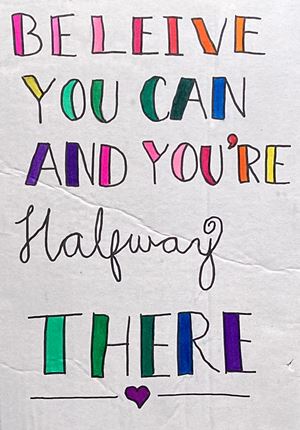 BELEIVE
YOU CAN
AND YOU'RE
Halfway
THERE